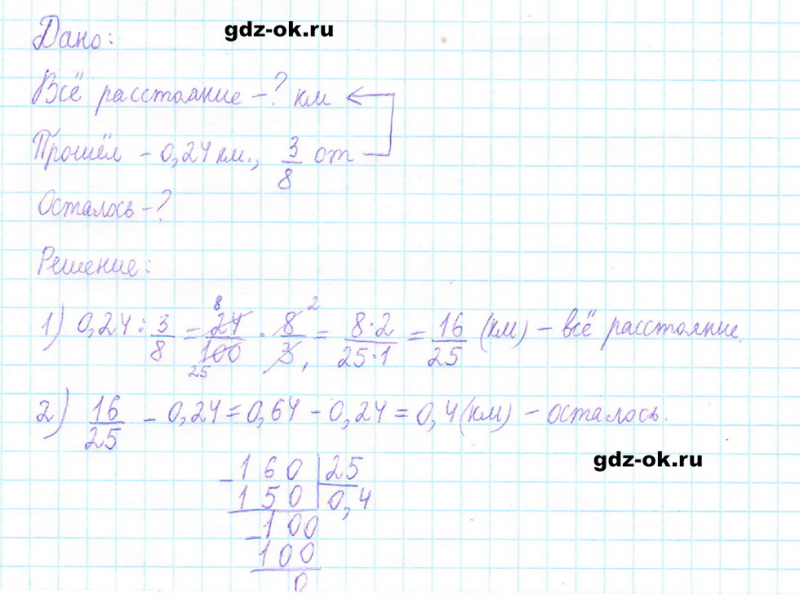 gdz-ok.ru
Дано:
Всё расстояние – ? км
Прошёл – 0,24 км., 3/8 от
Осталось – ?
Решение:
1) 0,24 : 3/8 = 24/100 · 8/3 = 8·2/25·1 = 16/25 (км) – всё расстояние.
8 2
25 1
2) 16/25 – 0,24 = 0,64 – 0,24 = 0,4 (км) – осталось.
gdz-ok.ru
– 160 | 25
150 | 0,4
– 100
100
0